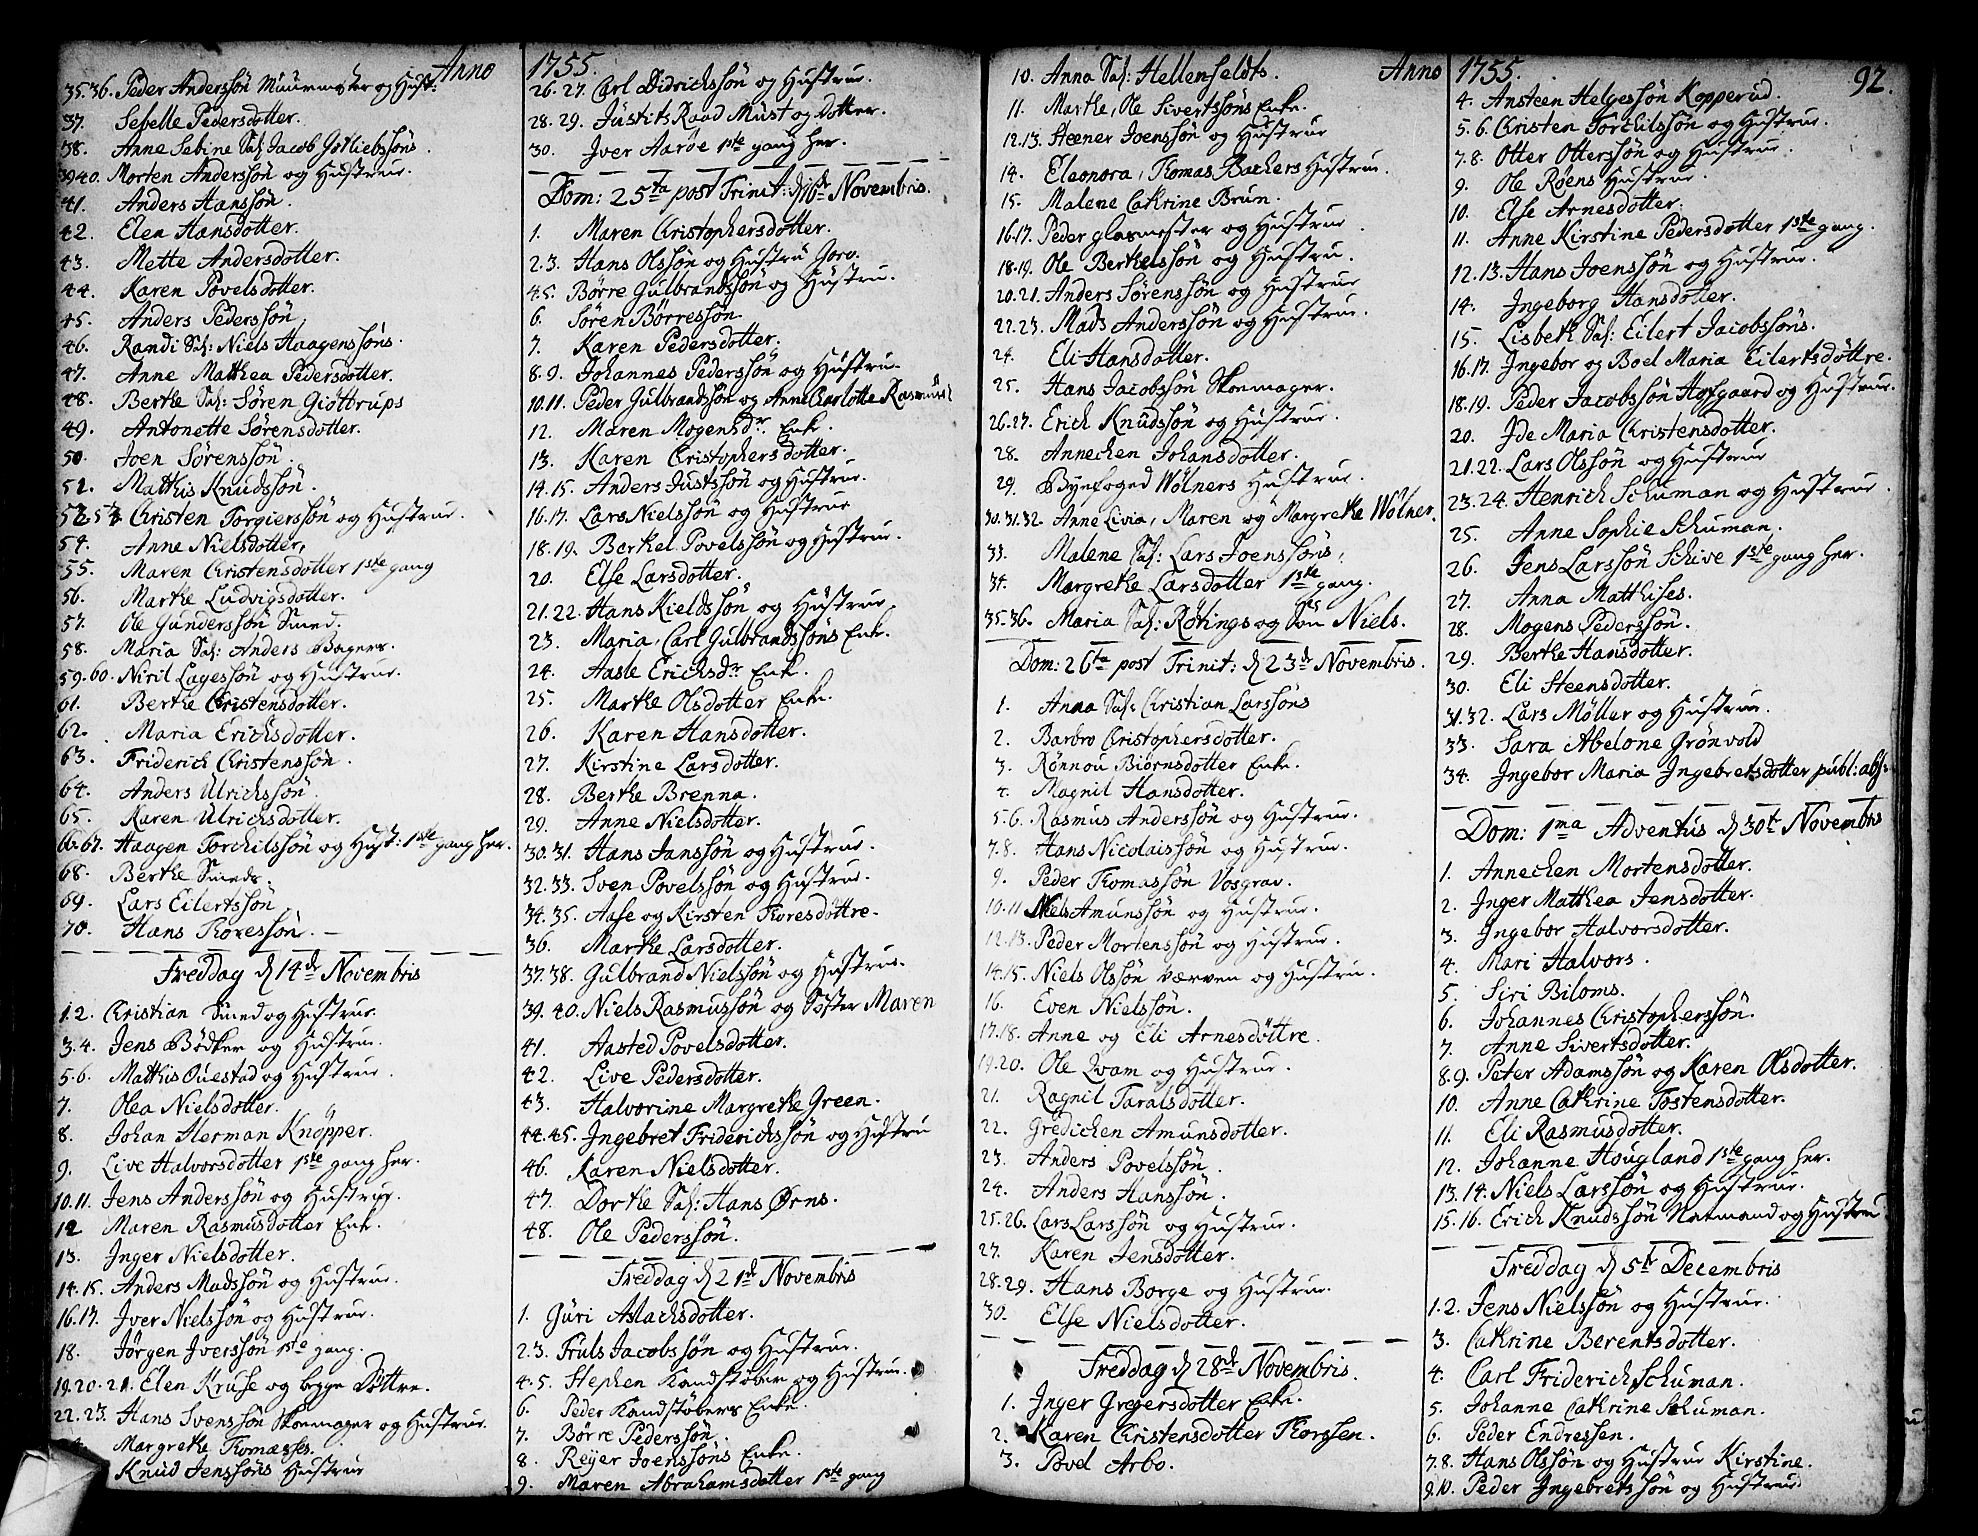 Anno 1755.
35.36. Peder Anderssön Muurmester og Hust:
37. Seselle Pedersdotter.
38. Anne Sebine Sal: Jacob Gotliebssöns.
39 40. Morten Anderssön og Hustrue.
41. Anders Hanssön.
42. Elen Hansdotter.
43. Mette Andersdotter.
44. Karen Povelsdotter.
45. Anders Pederssön.
46. Randi Sal: Niels Haagenssöns.
47. Anne Mathea Pedersdotter.
48. Berthe Sal: Sören Giöttrups
49. Antonette Sörensdotter.
50. Joen Sörenssön.
51. Matthis Knudssön.
52.53 Christen Torgierssön og Hustrue.
54. Anne Nielsdotter,
55. Maren Christensdotter 1ste gang
56. Marthe Ludvigsdotter.
57. Ole Gunderssön Smed.
58. Maria Sal: Anders Bagers.
59.60. Niril Lagessön og Hustrue.
61. Berthe Christensdotter.
62. Maria Erichsdotter.
63. Friderich Christenssön.
64. Anders Ulrichssön.
65. Karen Ulrichsdotter.
66.67. Haagen Torchilssön og Hust: 1ste gang her.
68. Berthe Smeds.
69. Lars Eilertssön
70. Hans Thoressön.
Freddag d 14de Novembris
1.2. Christian Smed og Hustrue.
3.4. Jens Bödker og Hustrue.
5.6. Matthis Ouestad og Hustrue.
7. Olea Nielsdotter.
8. Johan Herman Knöpper.
9. Live Halvorsdotter 1ste gang her.
10.11. Jens Anderssön og Hustrue.
12 Maren Rasmusdotter Enk.
13. Inger Nielsdotter.
14.15. Anders Madssön og Hustrue.
16.17. Iver Nielssön og Hustrue.
18. Jörgen Iverssön 1ste gang.
19.20.21. Elen Kruse og begge Döttre.
22.23. Hans Svenssön Skoemager og Hustrue.
Margrethe Thomasses.
Knud Jenssöns Hustrue
26.27. Carl Didrichssön og Hustrue.
28.29. Justits Raad Must og Dotter.
30. Iver Aaröe 1ste gang her.
Dom: 25ta post Trinit: d 16de Novembris.
1. Maren Christophersdotter.
2.3. Hans Olssön og Hustru Joro.
4.5. Börre Gulbrandssön og Hustru.
6. Sören Börressön
7. Karen Pedersdotter.
8.9. Johannes Pederssön og Hustru
10.11. Peder Gulbrandssön og Anne Charlotte Rasmus:
12. Maren Mogensdr. Enk.
13. Karen Christophersdotter.
14.15. Anders Justssön og Hustrue.
16.17. Lars Nielssön og Hustrue
18.19. Berthel Povelssön og Hustrue.
20. Else Larsdotter.
21.22. Hans Kieldssön og Hustrue
23. Maria, Carl Gulbrandssöns Enk.
24. Aasle Erichsdr Enk.
25. Marthe Olsdotter Enke.
26. Karen Hansdotter.
27. Kirstine Larsdotter.
28. Berthe Brenna.
29. Anne Nielsdotter.
30.31. Hans Janssön og Hustrue.
32.33. Sven Povelssön og Hustrue.
34.35. Aase og Kirsten Thoresdöttre.
36. Marthe Larsdotter.
37.38. Gulbrand Nielssön og Hustrue.
39.40. Niels Rasmussön og Söster Maren
41. Aasted Povelsdotter.
42. Live Pedersdotter.
43. Halvorine Margrethe Green.
44.45. Ingebret Friderichssön og Hustru
46. Karen Nielsdotter.
47. Dorthe Sal: Hans Ørns.
48. Ole Pederssön.
Freddag d 21de Novembris
1. Guri Aslachsdotter.
2.3. Truls Jacobssön og Hustrue.
4.5. Stephen Kandstöber og Hustrue.
6. Peder Kandstöbers Enke.
7. Börre Pederssön.
8. Reyer Joenssöns Enke.
9. Maren Abrahamsdotter 1ste gang
Anno 1755. 92.
10. Anna Sal: Hellenfeldts.
11. Marthe, Ole Sivertssöns Enke.
12.13. Steener Joenssön og Hustrue
14. Eleonora, Thomas Bachers Hustrue.
15. Malene Cathrine Brun.
16.17. Peder Glasmester og Hustrue
18.19. Ole Berthelssön og Hustru.
20.21. Anders Sörenssön og Hustrue
22.23. Mads Anderssön og Hustrue.
24. Eli Hansdatter.
25. Hans Jacobssön Skoemager.
26.27. Erich Knudssön og Hustrue
28. Annechen Johansdotter.
29. Byefoged Wölners Hustrue.
30.31.32. Anne Livia, Maren og Margrethe Wölner.
33. Malene Sal: Lars Joenssöns.
34. Margrethe Larsdotter 1ste gang.
35.36. Maria Sal: Rötings og Sön Niels.
Dom: 26ta post Trinit: d 23de Novembris.
1. Anna Sal: Christian Larssöns
2. Barbro Christophersdotter.
3. Rönnou Biörnsdotter Enke.
4. Magnil Hansdotter.
5.6. Rasmus Anderssön og Hustrue.
7.8. Hans Nicolaissön og Hustrue.
9. Peder Thomassön Vosgrav.
10.11 Niels Amunssön og Hustrue.
12.13. Peder Mortenssön og Hustrue.
14.15. Niels Olssön Værven og Hustru.
16. Even Nielssön.
17.18. Anne og Eli Arnesdöttre.
19.20. Ole Qvam og Hustrue.
21. Ragnil Taralsdotter.
22. Gredichen Amunsdotter.
23. Anders Povelssön.
24. Anders Hanssön.
25.26. Lars Larssön og Hustrue.
27. Karen Jensdotter.
28.29. Hans Borge og Hustrue.
30. Else Nielsdotter.
Freddag d 28de Novembris.
1. Inger Gregersdotter Enke.
2. Karen Christensdotter Thorssen.
3. Povel Arbo.
4. Ansteen Helgessön Kopperud.
5.6. Christen Torchilssön og Hustrue.
7.8. Otter Otterssön og Hustrue.
9. Ole Röens Hustrue.
10. Else Arnesdotter.
11. Anne Kirstine Pedersdotter 1ste gang.
12.13. Hans Joenssön og Hustrue.
14. Ingeborg Hansdotter.
15. Lisbeth Sal: Eilert Jacobssöns.
16.17. Ingebor og Boel Maria Eilertsdöttre.
18.19. Peder Jacobssön Hofgaard og Hustrue.
20. Ide Maria Christensdotter.
21.22. Lars Olssön og Hustrue
23.24. Henrich Schuman og Hustrue.
25. Anne Sophie Schuman.
26. Jens Larssön Schive 1ste gang her.
27. Anna Matthises.
28. Mogens Pederssön.
29. Berthe Hansdotter.
30. Eli Steensdotter.
31.32. Lars Möller og Hustrue.
33. Sara Abelone Grönvold
34. Ingebor Maria Ingebretsdotter publ: abs:
Dom: 1ma Adventus d 30te Novembris
1. Annechen Mortensdotter.
2. Inger Mathea Jensdotter.
3. Ingebor Halvorsdotter.
4. Mari Halvors.
5. Siri Biloms.
6. Johannes Christopherssön.
7. Anne Sivertsdotter.
8.9. Peter Adamssön og Karen Olsdotter.
10. Anne Cathrine Tostensdotter.
11. Eli Rasmusdotter.
12. Johanne Hougland 1ste gang her.
13.14. Niels Larssön og Hustrue.
15.16. Erich Knudssön Natmand og Hustru
Freddag d 5te Decembris
1.2. Jens Nielssön og Hustrue.
3. Cathrine Berentsdotter.
4. Carl Friderich Schuman.
5. Johanne Cathrine Schuman.
6. Peder Endressen.
7.8. Hans Olssön og Hustrue Kirstine.
9.10. Peder Ingebretssön og Hustrue